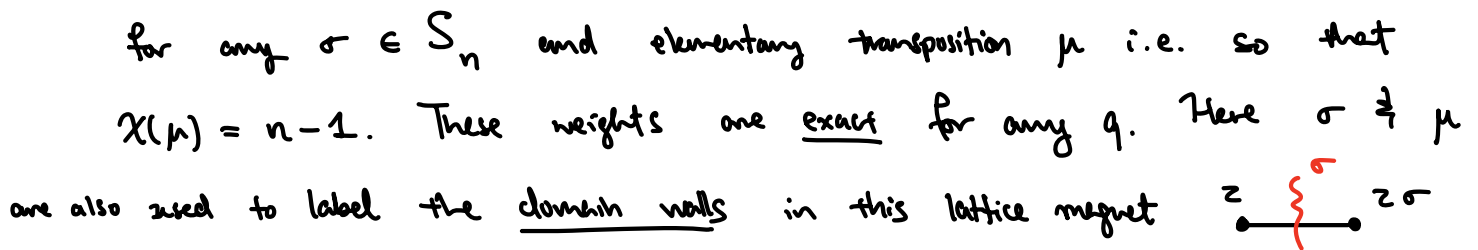 for any σ ∈ Sn and elementary transposition μ i.e. so that
χ(μ) = n-1. These weights are exact for any q. Here σ & μ
σ
are also used to label the domain walls in this lattice magnet τ τσ